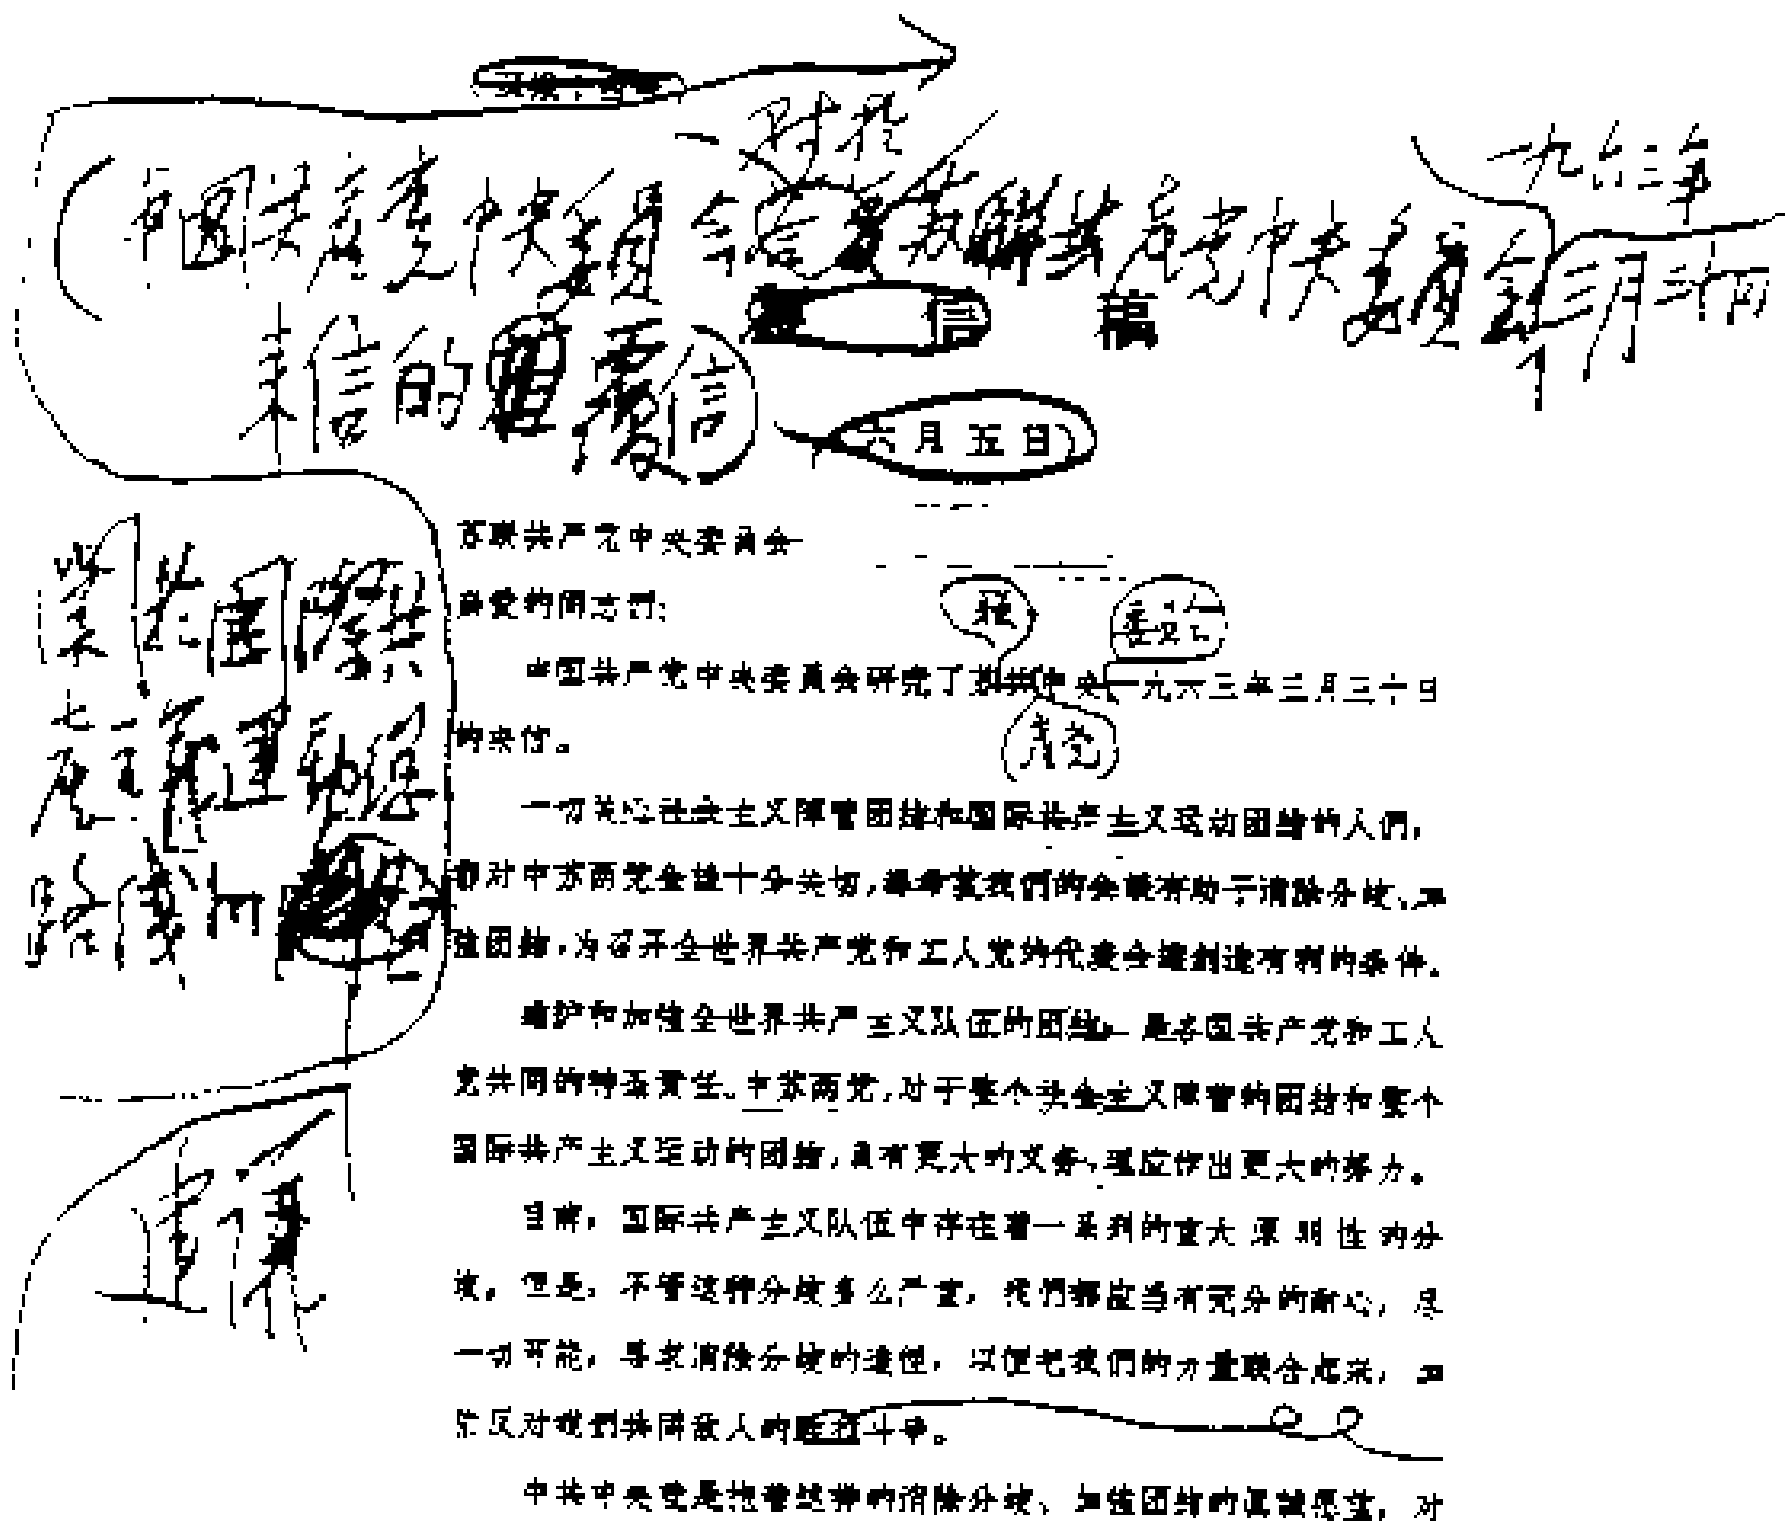 对于
一九六三年
(中国共产党中央委员会 苏联共产党中央委员会三月三十日
来信的 覆信
信 稿
六月五日)
关于国际共
产主义运动总
路线的
苏联共产党中央委员会
亲爱的同志们:
苏
委员会
中国共产党中央委员会研究了苏共中央一九六三年三月三十日
的来信。
产党
一切关心社会主义阵营团结和国际共产主义运动团结的人們,
都对中苏两党会談十分关切,都希望我們的会談有助于消除分歧、加
强团结,为召开全世界共产党和工人党的代表会議創造有利的条件。
維护和加强全世界共产主义队伍的团结,是各国共产党和工人
党共同的神圣責任。中苏两党,对于整个社会主义陣营的团结和整个
国际共产主义运动的团结,負有更大的义务,理应作出更大的努力。
目前,国际共产主义队伍中存在着一系列的重大原則性的分
歧。但是,不管这种分歧多么严重,我們都应当有充分的耐心,尽
一切可能,寻求消除分歧的途徑,以便把我們的力量联合起来,加
强反对我們共同敌人的 斗爭。
中共中央就是抱着这种的消除分歧、加强团结的真誠愿望,对